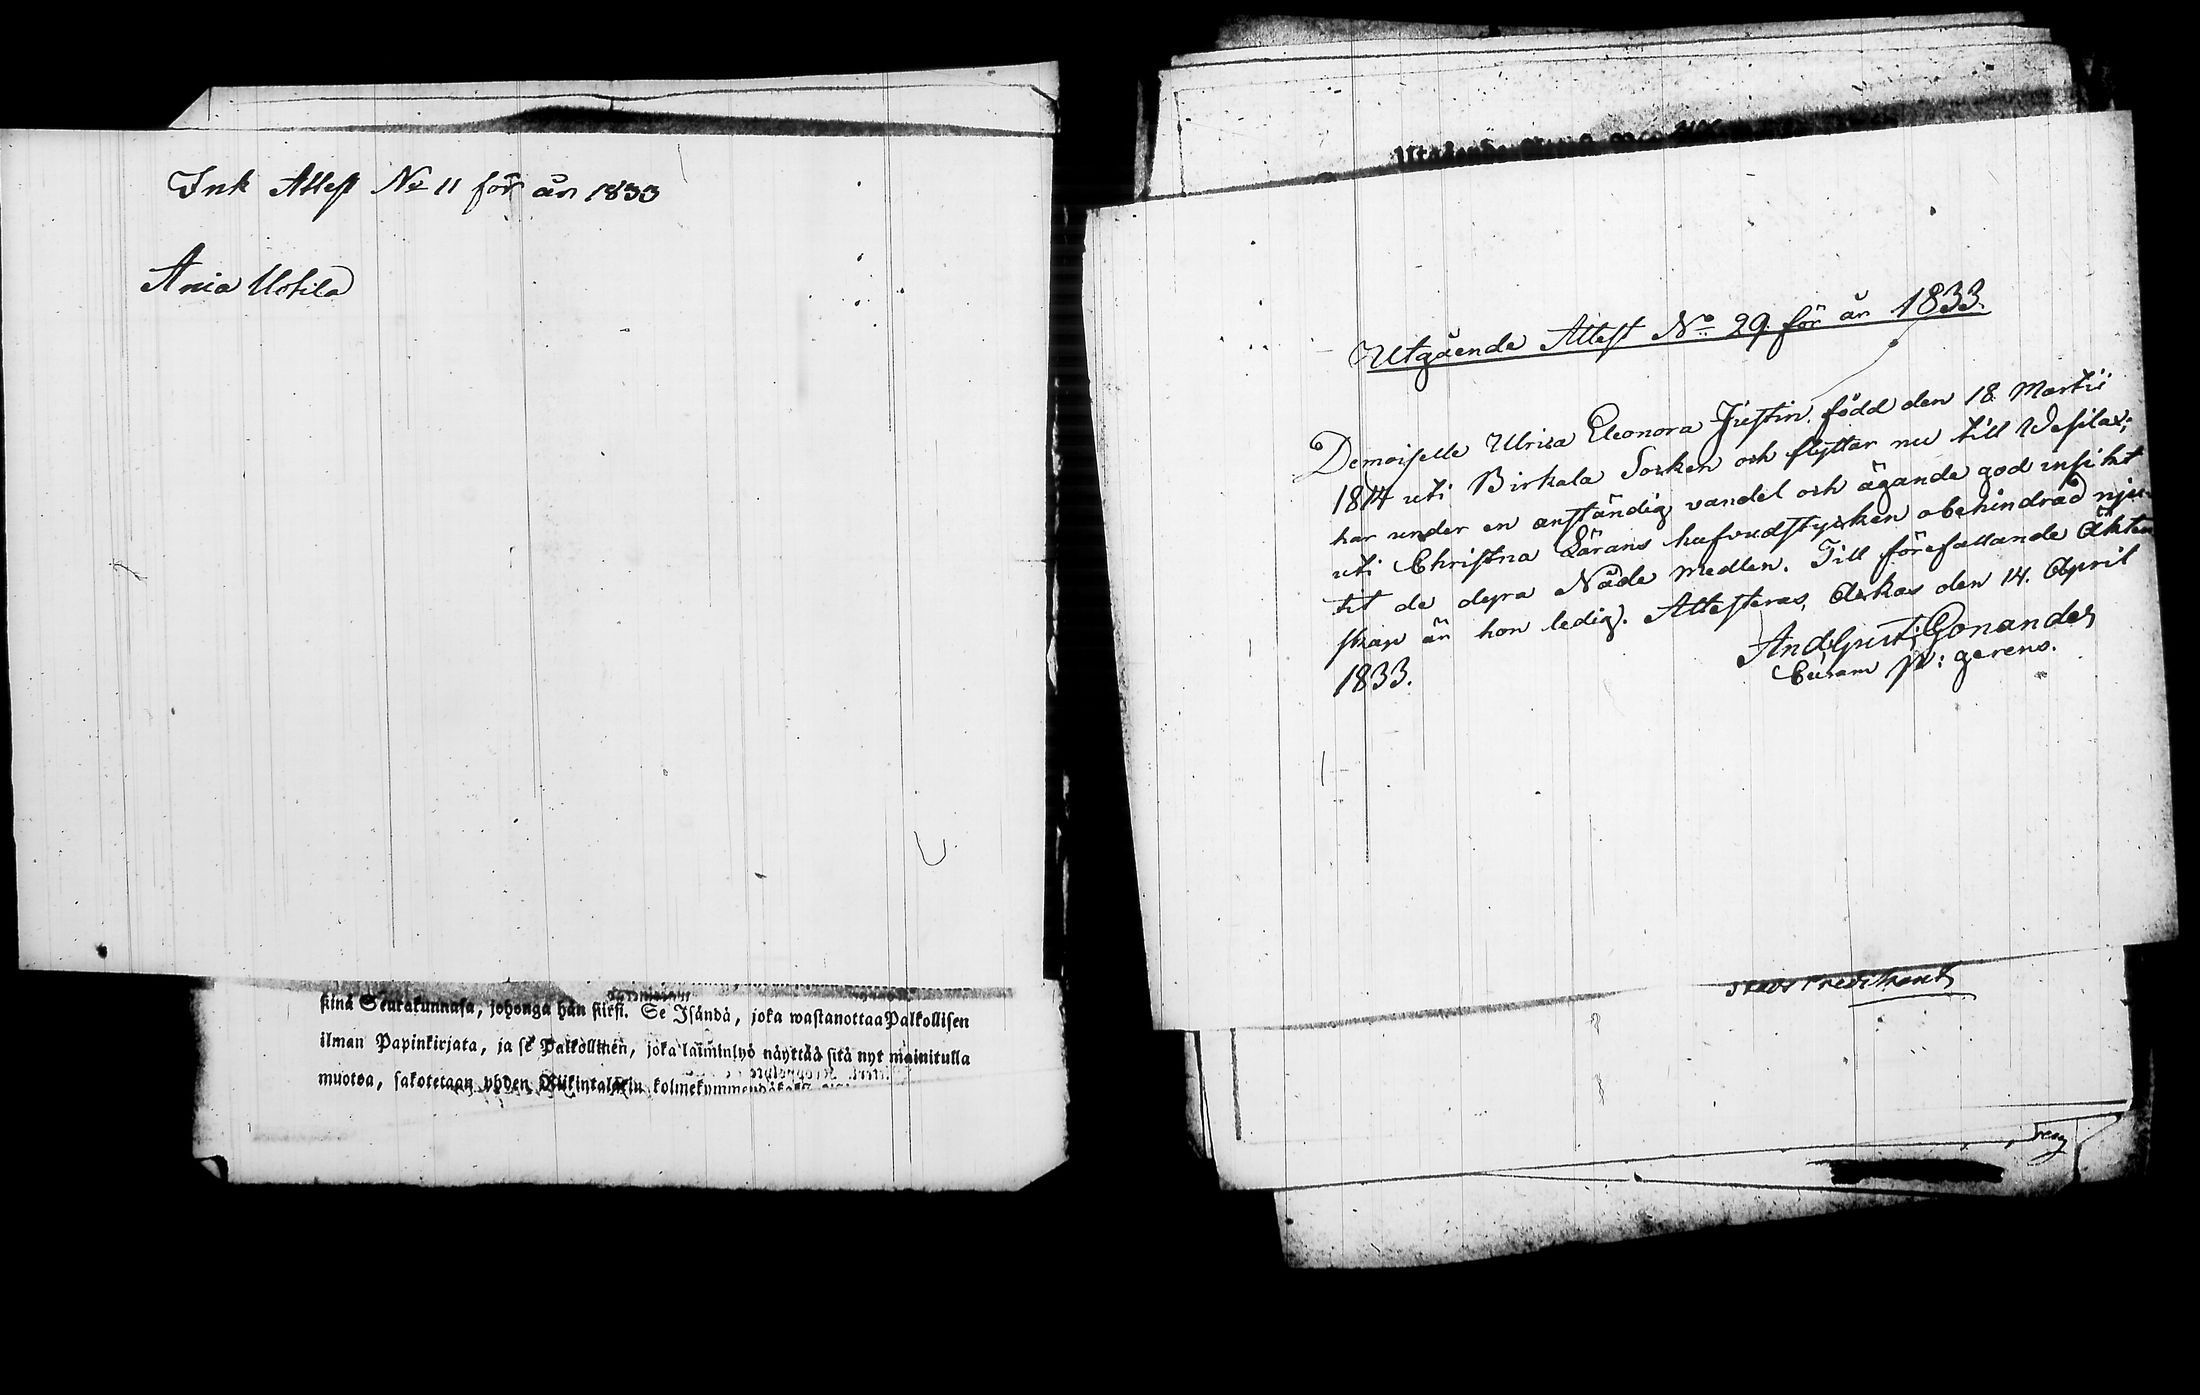 Ink Attest No 11 för år 1833
Ania Uotila
kinä Seurakunnasa, johonga hän siirsi. Se Isändä, joka wastanottaa Palkollisen
ilman Papinkirjata, ja se Palkollinen, joka laiminlyö näyttää sitä nyt mainitulla
muotoa, sakotetaan yhden Riikintalarin
Utgående Attest No 29 för år 1833.
Demoiselle Ulrica Eleonora Justin, född den 18 Martii
1814 uti Birkala Socken och flyttar nu till Wesilax;
har under en anständig vandel och ägande god insikt
uti Christna Lärans hufvudstycken obehindrad nju-
tit de dyra Nåde medlen. Till förefallande Äkten
skap är hon ledig. Attesteras, Ackas den 14. April
1833.
And: Gust: Gonander
Curam P: gerens.